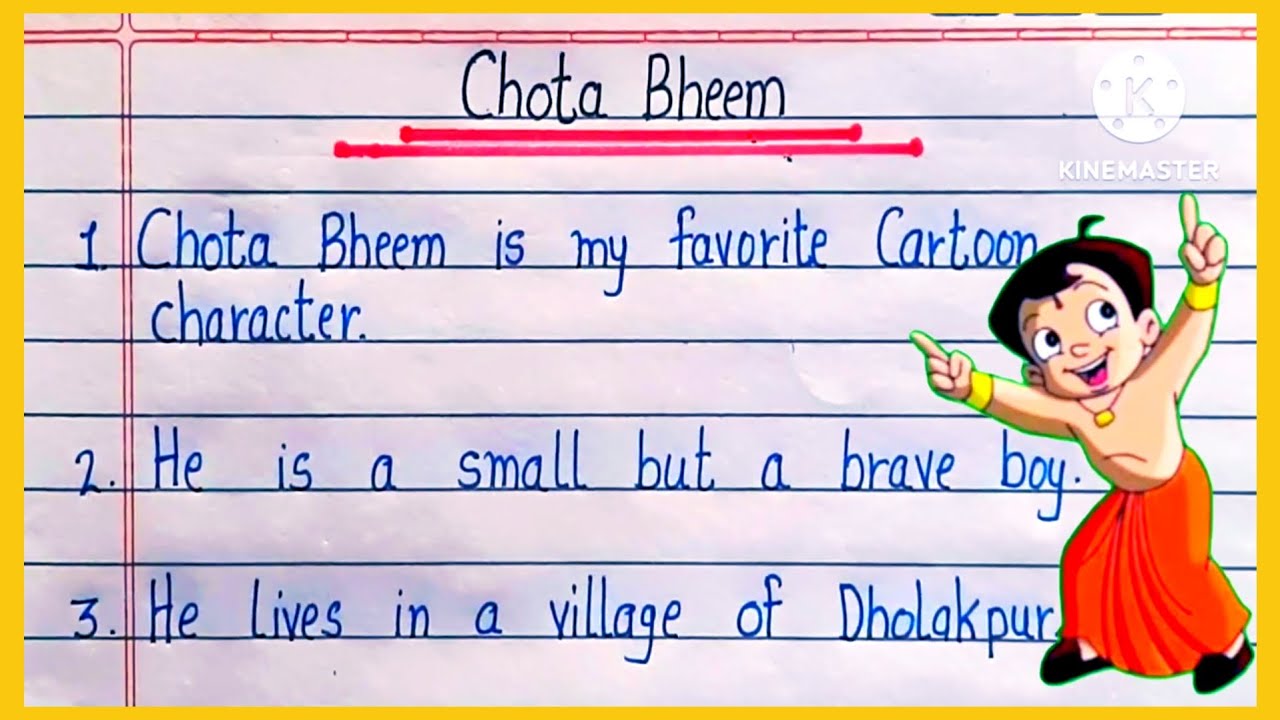 Chota Bheem
KINEMASTER
1. Chota Bheem is my favorite Cartoon
character.
2. He is a small but a brave boy.
3. He lives in a village of Dholakpur